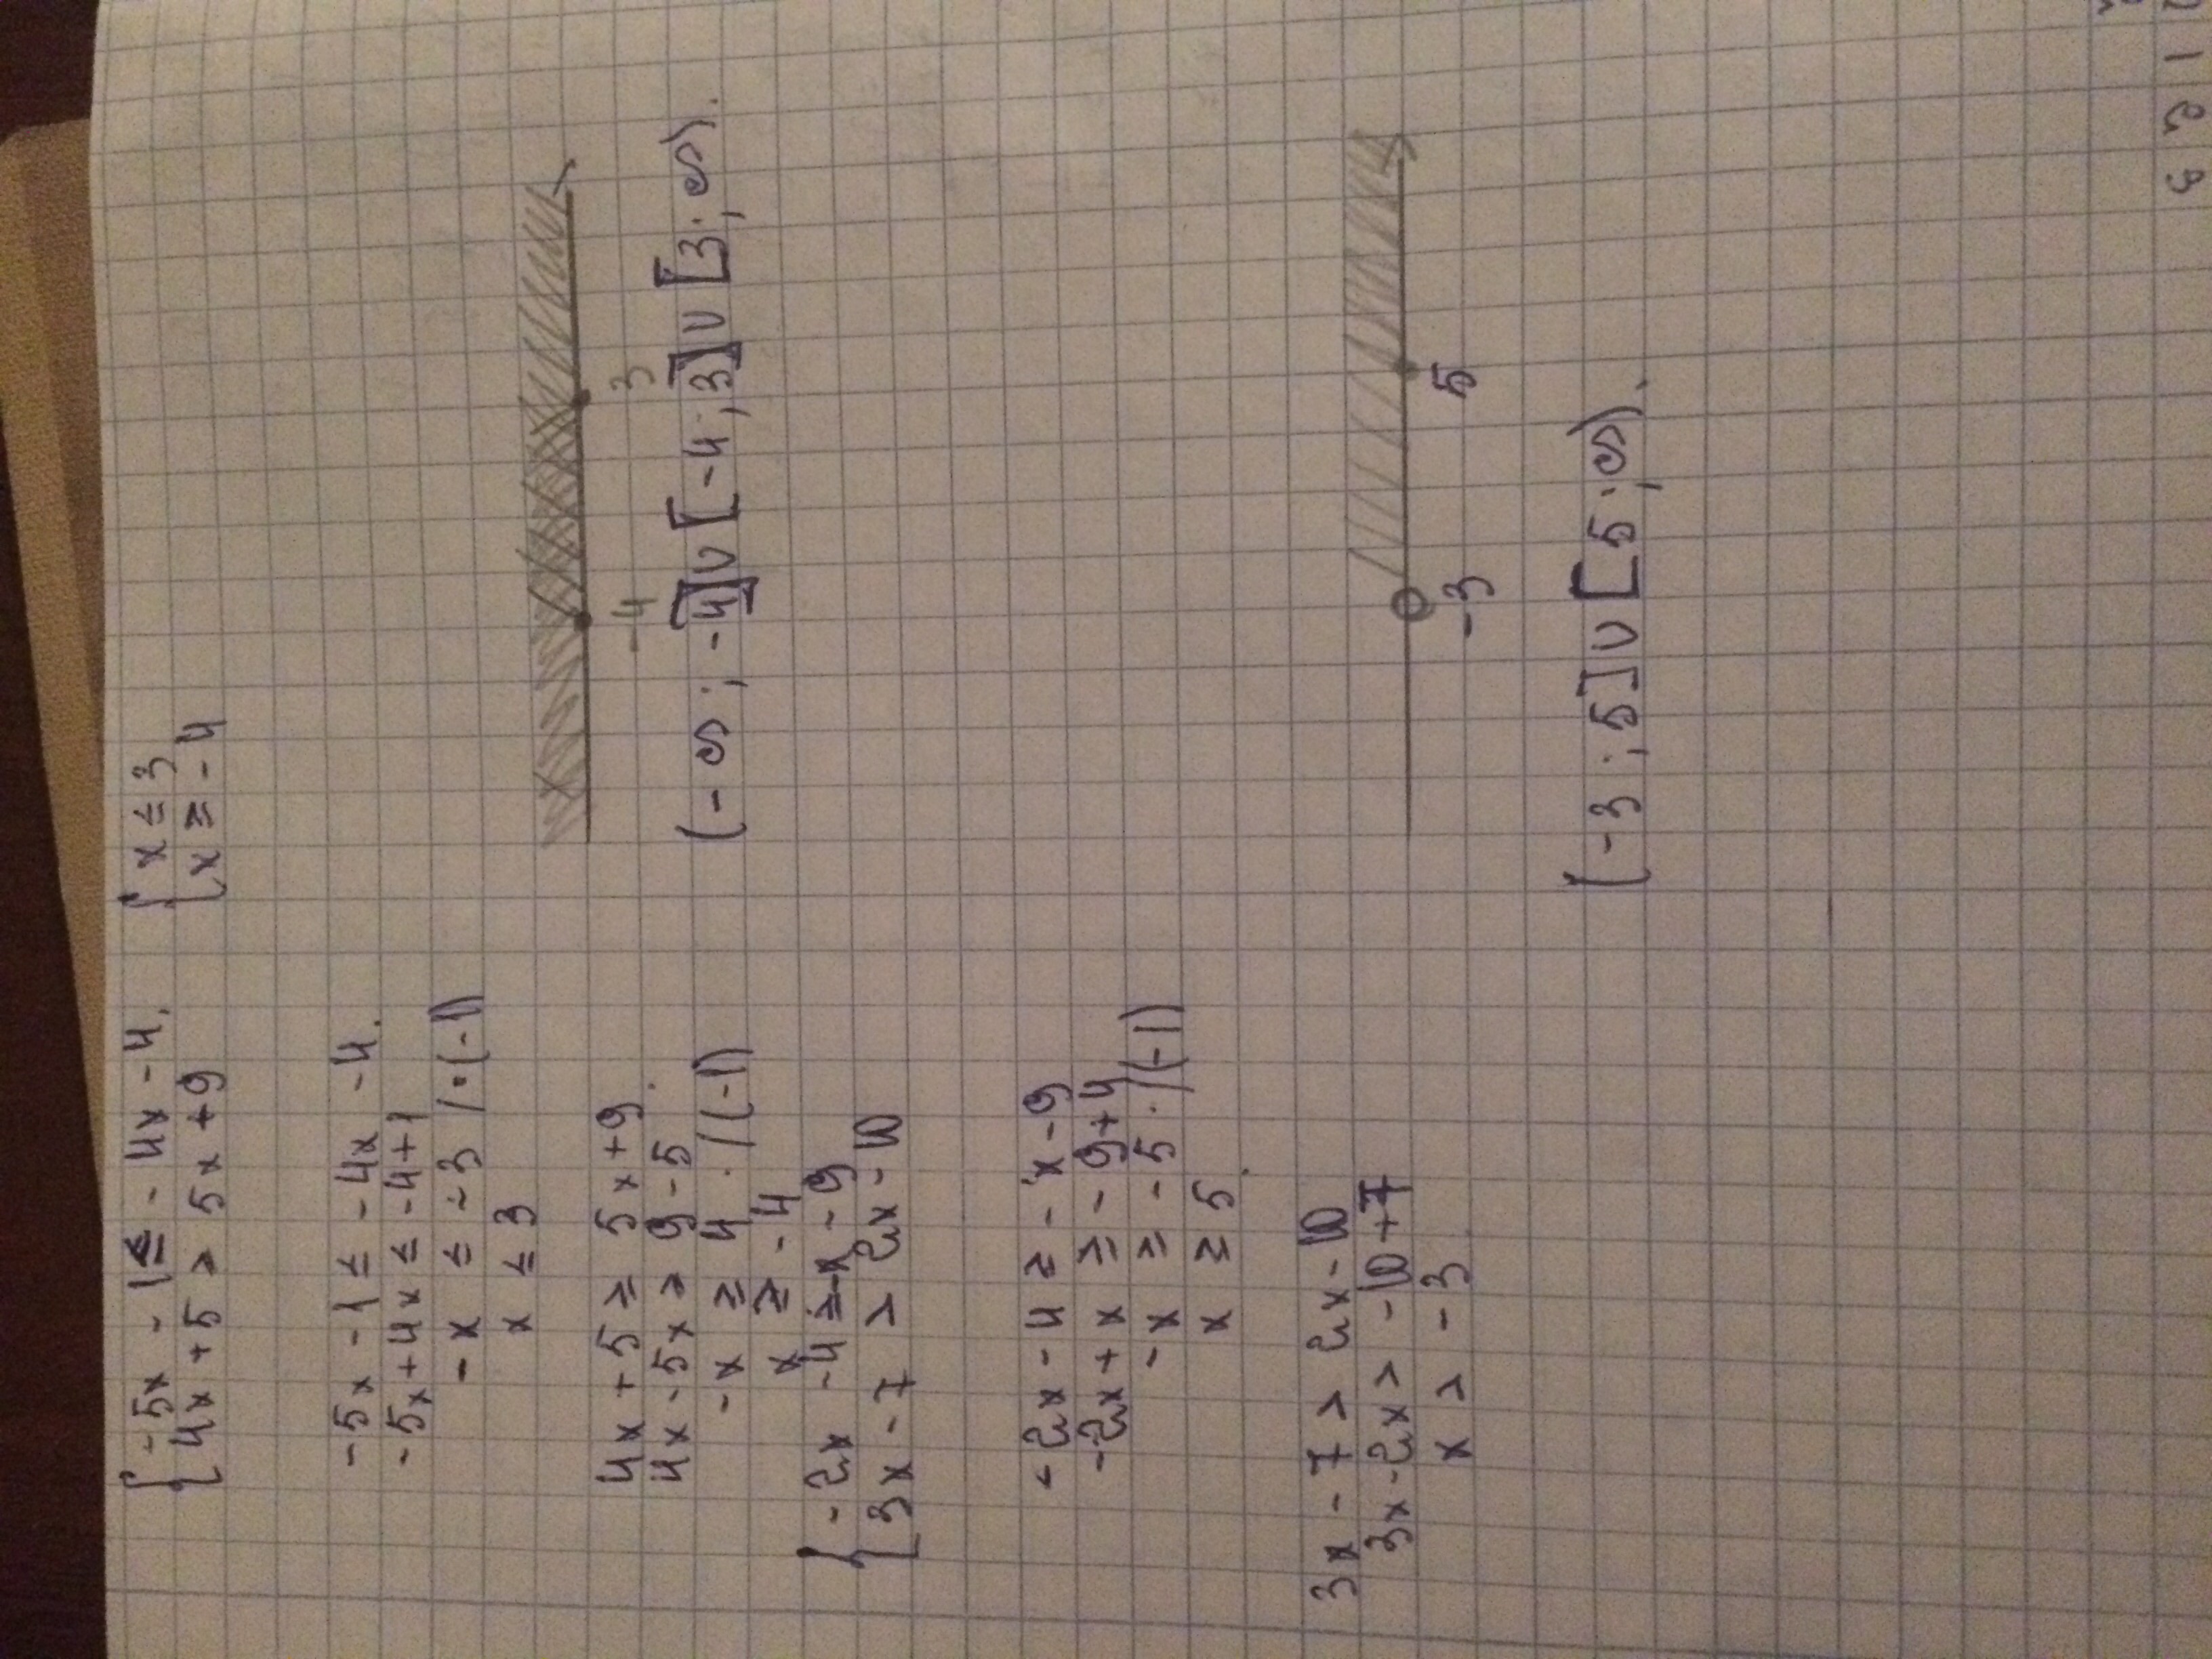 { -5x - 1 ≤ -4x - 4,
4x + 5 > 5x + 9
{ x ≤ 3
x ≥ -4
-5x - 1 ≤ -4x - 4.
-5x + 4x ≤ -4 + 1
-x ≤ -3 / · (-1)
x ≤ 3
4x + 5 ≥ 5x + 9.
4x - 5x ≥ 9 - 5
-x ≥ 4 . / (-1)
x ≥ -4
-4 3
(-∞; -4] ∪ [-4; 3] ∪ [3; ∞).
{ -2x - 4 ≥ -x - 9
3x - 7 > 2x - 10
-2x - 4 ≥ -x - 9
-2x + x ≥ -9 + 4
-x ≥ -5 . / (-1)
x ≥ 5.
3x - 7 > 2x - 10
3x - 2x > -10 + 7
x > -3
-3 5
(-3; 5] ∪ [5; ∞).